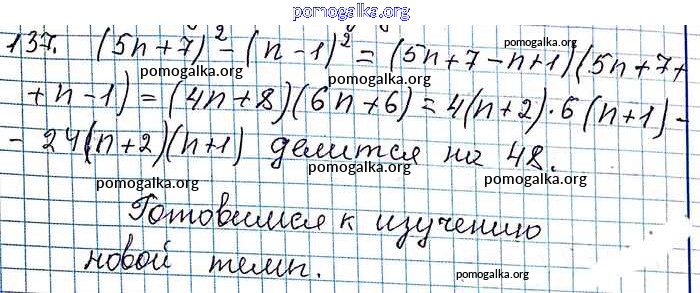 pomogalka.org
137. (5n+7)² - (n-1)² = (5n+7-n+1)(5n+7+
pomogalka.org pomogalka.org pomogalka.org
+n-1) = (4n+8)(6n+6) = 4(n+2)·6(n+1) -
pomogalka.org pomogalka.org
- 24(n+2)(n+1) делится на 48.
pomogalka.org pomogalka.org pomogalka.org
Готовимся к изучению
pomogalka.org pomogalka.org
новой темы.
pomogalka.org pomogalka.org